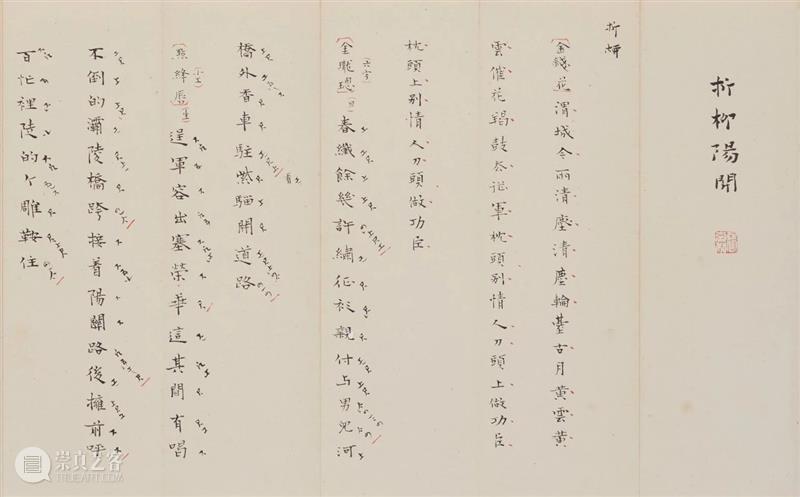 折柳陽關
折柳
〔金錢花〕渭城今雨清塵清塵輪臺古月黃雲黃
雲催花羯鼓從軍枕頭別情人刀頭上做功臣
枕頭上別情人刀頭做功臣
〔金瓏璁〕六字 旦 春纖餘幾許繡征衫親付与男兒河
橋外香車駐紫騮開道路
〔點絳唇〕小工 生 逞軍容出塞榮華這其間有喝
不倒的灞陵橋跨接着陽關路後擁前呼
百忙裡陡的个雕鞍住
崇真艺客
TRUEART.COM